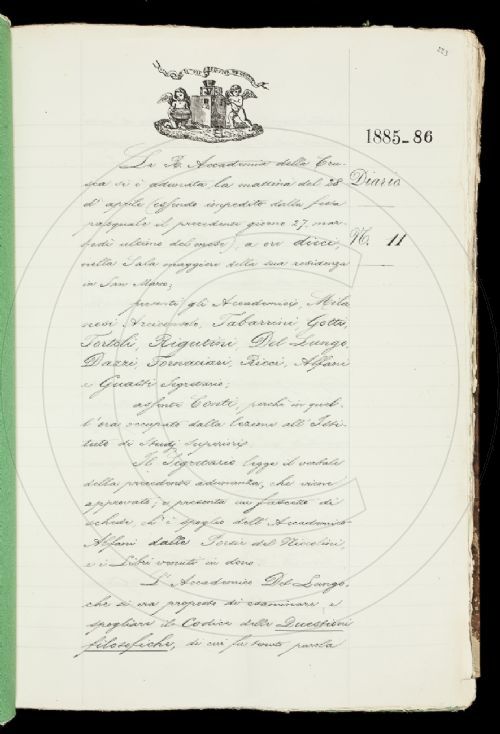 223
1885-86
Diario
N. 11
La R. Accademia della Cru-
sca si è adunata la mattina del 28
d' aprile (essendo impedito dalla festa
pasquale il precedente giorno 27, mar-
tedì ultimo del mese), a ore dieci,
nella Sala maggiore della sua residenza
in San Marco;
presenti gli Accademici, Mila-
nesi Arciconsolo, Tabarrini, Gotti,
Tortoli, Rigutini, Del Lungo,
Dazzi, Fornaciari, Ricci, Alfani
e Guasti Segretario;
assente Conti, perchè in quel-
l'ora occupato dalla lezione all' Isti-
tuto di Studj superiori.
Il Segretario legge il verbale
della precedente adunanza, che viene
approvato; e presenta un fascetto di
schede, ch' è spoglio dell' Accademico
Alfani dalle Poesie del Niccolini,
e i Libri venuti in dono.
L' Accademico Del Lungo,
che si era proposto di esaminare e
spogliare il Codice delle Questioni
filosofiche, di cui fu tenuto parola